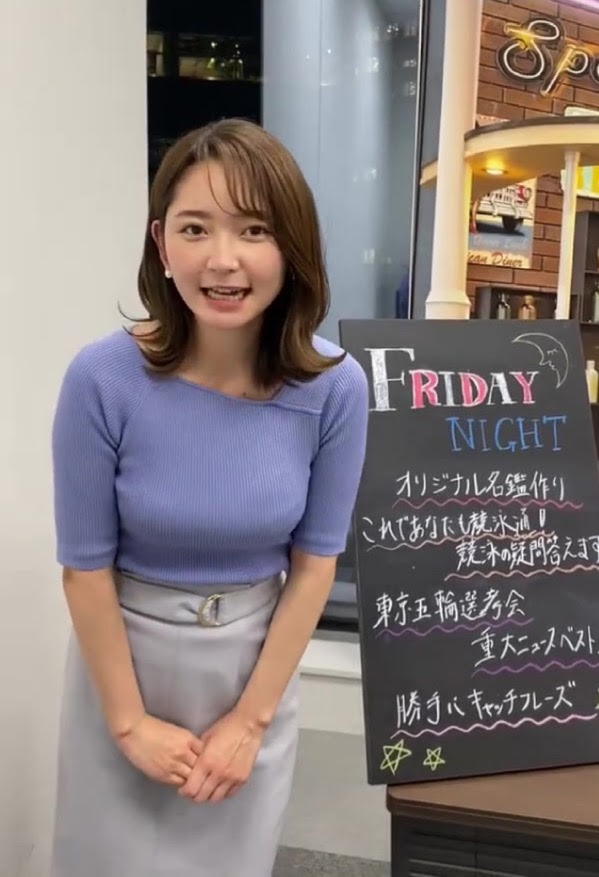 Spe
can Diner
FRIDAY
NIGHT
オリジナル名鑑作り
これであなたも競泳通!
競泳の疑問答えます
東京五輪選考会
重大ニュースベスト
勝手にキャッチフレーズ